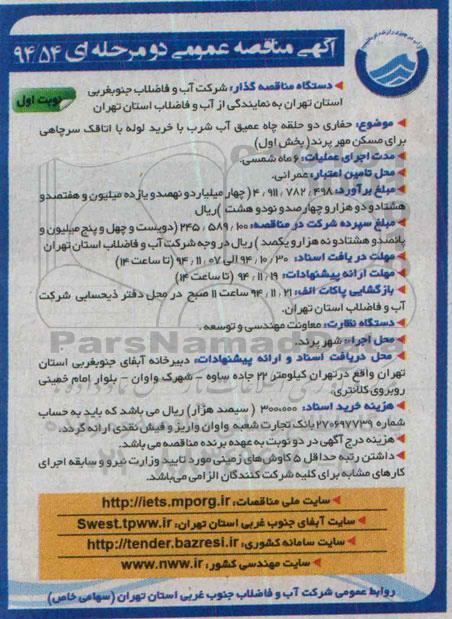 آگهی مناقصه عمومی دو مرحله ای ۹۴/۵۴
نوبت اول
دستگاه مناقصه گذار: شرکت آب و فاضلاب جنوبغربی
استان تهران به نمایندگی از آب و فاضلاب استان تهران
موضوع: حفاری دو حلقه چاه عمیق آب شرب با خرید لوله با اتاقک سرچاهی
برای مسکن مهر پرند (بخش اول)
مدت اجرای عملیات: ۶ ماه شمسی.
محل تامین اعتبار: عمرانی.
مبلغ برآورد: ۴,۹۱۱,۷۸۲,۴۹۸ (چهار میلیارد و نهصد و یازده میلیون و هفتصد و
هشتاد و دو هزار و چهارصد و نود و هشت) ریال
مبلغ سپرده شرکت در مناقصه: ۲۴۵,۵۸۹,۱۰۰ (دویست و چهل و پنج میلیون و
پانصد و هشتاد و نه هزار و یکصد) ریال در وجه شرکت آب و فاضلاب استان تهران
مهلت دریافت اسناد: ۹۴,۱۰,۳۰ الی ۹۴,۱۱,۰۷ (تا ساعت ۱۴)
مهلت ارائه پیشنهادات: ۹۴,۱۱,۱۹ (تا ساعت ۱۴)
بازگشایی پاکات الف: ۹۴,۱۱,۲۱ ساعت ۱۱ صبح در محل دفتر ذیحسابی شرکت
آب و فاضلاب استان تهران.
دستگاه نظارت: معاونت مهندسی و توسعه.
محل اجرا: شهر پرند.
محل دریافت اسناد و ارائه پیشنهادات: دبیرخانه آبفای جنوبغربی استان
تهران واقع در تهران کیلومتر ۲۲ جاده ساوه - شهرک واوان - بلوار امام خمینی
روبروی کلانتری.
هزینه خرید اسناد: ۳۰۰,۰۰۰ (سیصد هزار) ریال می باشد که باید به حساب
شماره ۲۷۰۶۹۷۷۳۹ بانک تجارت شعبه واوان واریز و فیش نقدی ارائه گردد.
هزینه درج آگهی در دو نوبت به عهده برنده مناقصه می باشد.
داشتن رتبه حداقل ۵ کاوش های زمینی مورد تایید وزارت نیرو و سابقه اجرای
کارهای مشابه برای کلیه شرکت کنندگان الزامی می باشد.
سایت ملی مناقصات: http://iets.mporg.ir
سایت آبفای جنوب غربی استان تهران: Swest.tpww.ir
سایت سامانه کشوری: http://tender.bazresi.ir
سایت مهندسی کشور: www.nww.ir
روابط عمومی شرکت آب و فاضلاب جنوب غربی استان تهران (سهامی خاص)
ParsNamad